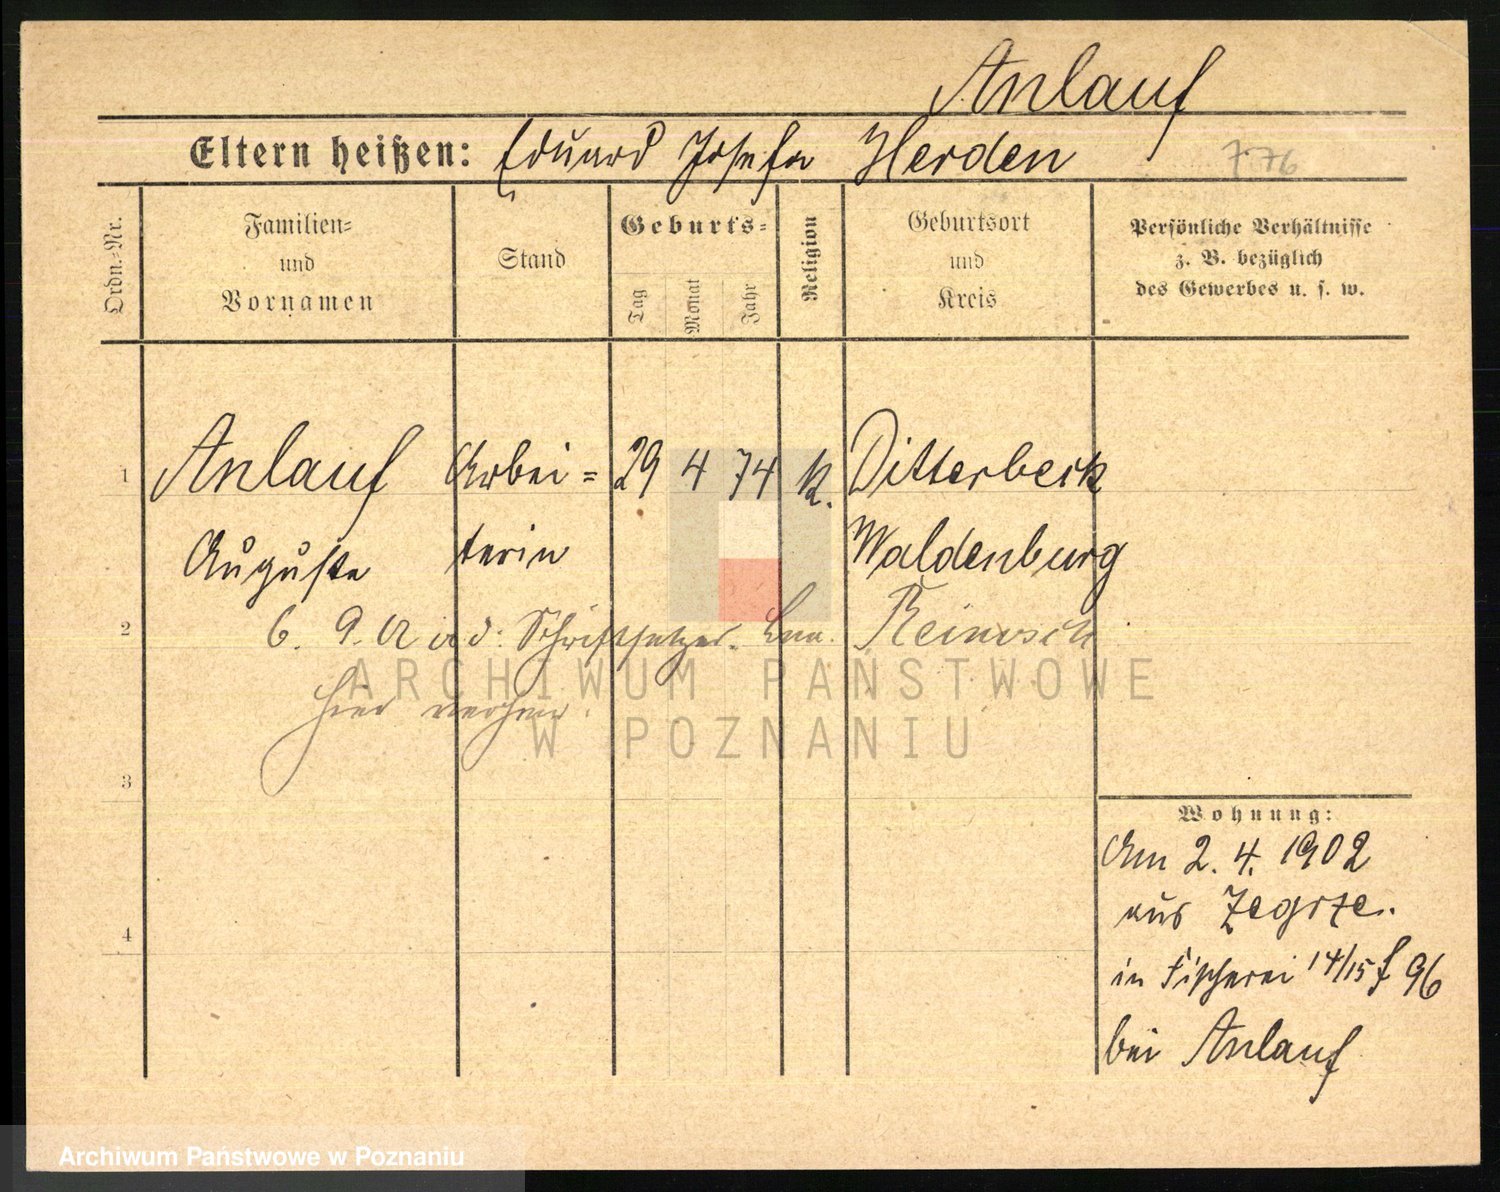 Anlauf
Eltern heißen: Eduard Josefa Herden
776
Ordn.-Nr.
Familien-
und
Vornamen
Stand
Geburts-
Tag
Monat
Jahr
Religion
Geburtsort
und
Kreis
Persönliche Verhältnisse
z. B. bezüglich
des Gewerbes u. s. w.
1 Anlauf Arbei= 29 4 74 K. Ditterbeck
Auguste terin Waldenburg
2 6. 9. 02 Schriftsetzer
hier
3
ARCHIWUM PAŃSTWOWE
W POZNANIU
Wohnung:
Am 2. 4. 1902
aus Zegrze.
in Fischerei 14/15 f 96
bei Anlauf
4
Archiwum Państwowe w Poznaniu